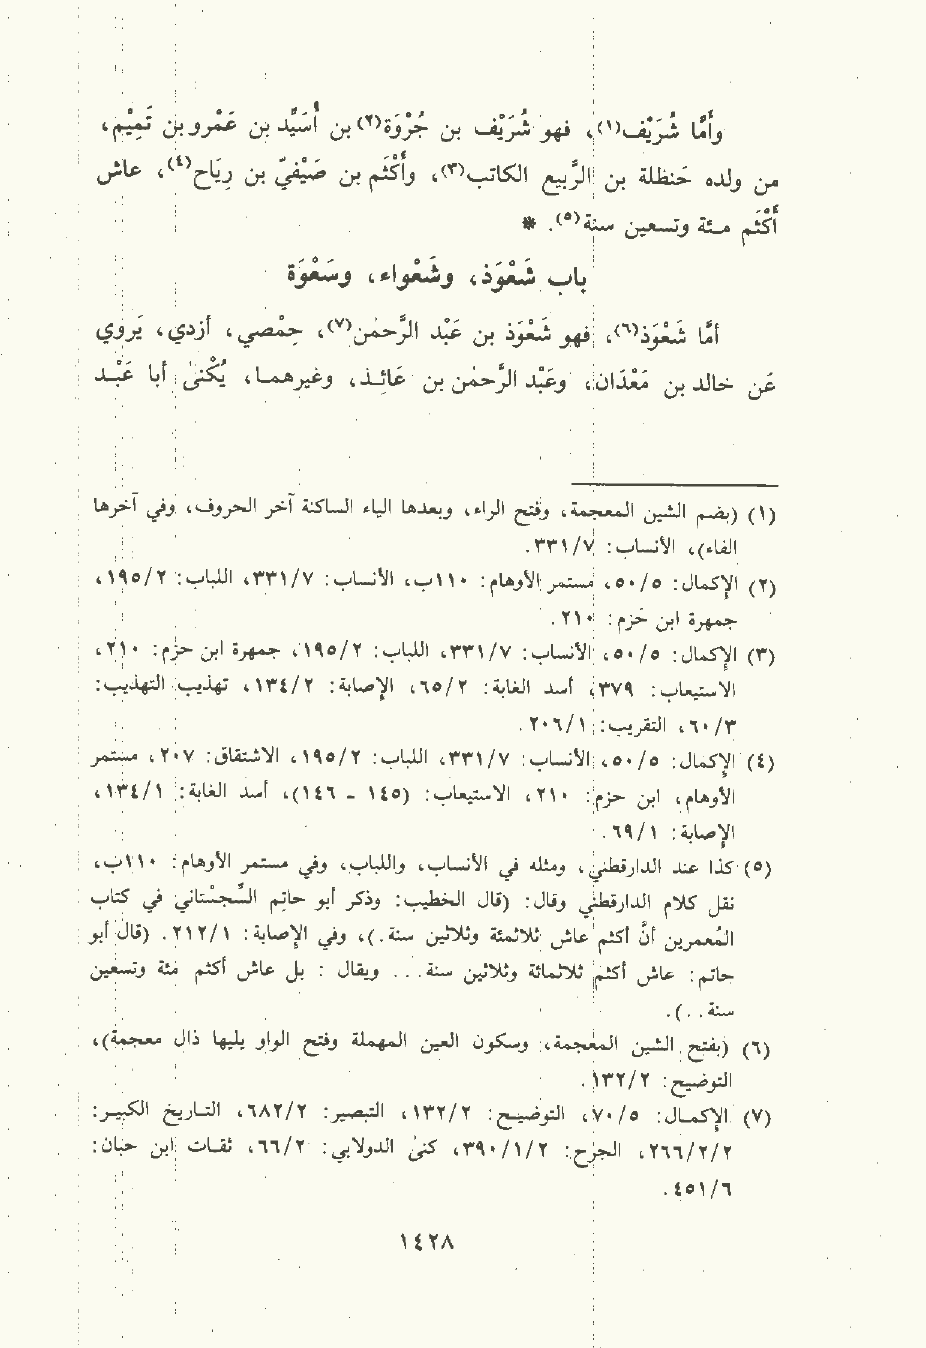 وأمَّا شُرَيْف(١)، فهو شُرَيْف بن جُرْوَة(٢) بن أُسَيِّد بن عَمْرو بن تَمِيْم،
من ولده حَنظلة بن الرَّبيع الكاتب(٣)، وأَكْثَم بن صَيْفيّ بن رِيَاح(٤)، عاش
أَكْثَم مئة وتسعين سنة(٥). *
باب شَعْوَذ، وشَعْواء، وسَعْوَة
أمَّا شَعْوَذ(٦)، فهو شَعْوَذ بن عَبْد الرَّحمٰن(٧)، حِمْصي، أزدي، يَروي
عَن خالد بن مَعْدَان، وعَبْد الرَّحمٰن بن عَائِـذ، وغيرهمـا، يُكْنىٰ أبا عَبْـد
(١) (بضم الشين المعجمة، وفتح الراء، وبعدها الياء الساكنة آخر الحروف، وفي آخرها
الفاء)، الأنساب: ٣٣١/٧.
(٢) الإكمال: ٥٠/٥، مستمر الأوهام: ١١٠ب، الأنساب: ٣٣١/٧، اللباب: ١٩٥/٢،
جمهرة ابن حَزم: ٢١٠.
(٣) الإكمال: ٥٠/٥، الأنساب: ٣٣١/٧، اللباب: ١٩٥/٢، جمهرة ابن حزم: ٢١٠،
الاستيعاب: ٣٧٩، أسد الغابة: ٦٥/٢، الإصابة: ١٣٤/٢، تهذيب التهذيب:
٦٠/٣، التقريب: ٢٠٦/١.
(٤) الإكمال: ٥٠/٥، الأنساب: ٣٣١/٧، اللباب: ١٩٥/٢، الاشتقاق: ٢٠٧، مستمر
الأوهام، ابن حزم: ٢١٠، الاستيعاب: (١٤٥ - ١٤٦)، أسد الغابة: ١٣٤/١،
الإصابة: ٦٩/١.
(٥) كذا عند الدارقطني، ومثله في الأنساب، واللباب، وفي مستمر الأوهام: ١١٠ب،
نقل كلام الدارقطني وقال: (قال الخطيب: وذكر أبو حاتِم السِّجسْتاني في كتاب
المُعمرين أنَّ أكثم عاش ثلاثمئة وثلاثين سنة.)، وفي الإصابة: ٢١٢/١. (قال أبو
حاتم: عاش أكثم ثلاثمائة وثلاثين سنة... ويقال : بل عاش أكثم مئة وتسعين
سنة...).
(٦) (بفتح الشين المعجمة، وسكون العين المهملة وفتح الواو يليها ذال معجمة)،
التوضيح: ١٣٢/٢.
(٧) الإكمـال: ٧٠/٥، التوضيـح: ١٣٢/٢، التبصير: ٦٨٢/٢، التـاريخ الكبيـر:
٢٦٦/٢/٢، الجرح: ٣٩٠/١/٢، كنىٰ الدولابي: ٦٦/٢، ثقـات ابن حبان:
٤٥١/٦.
١٤٢٨